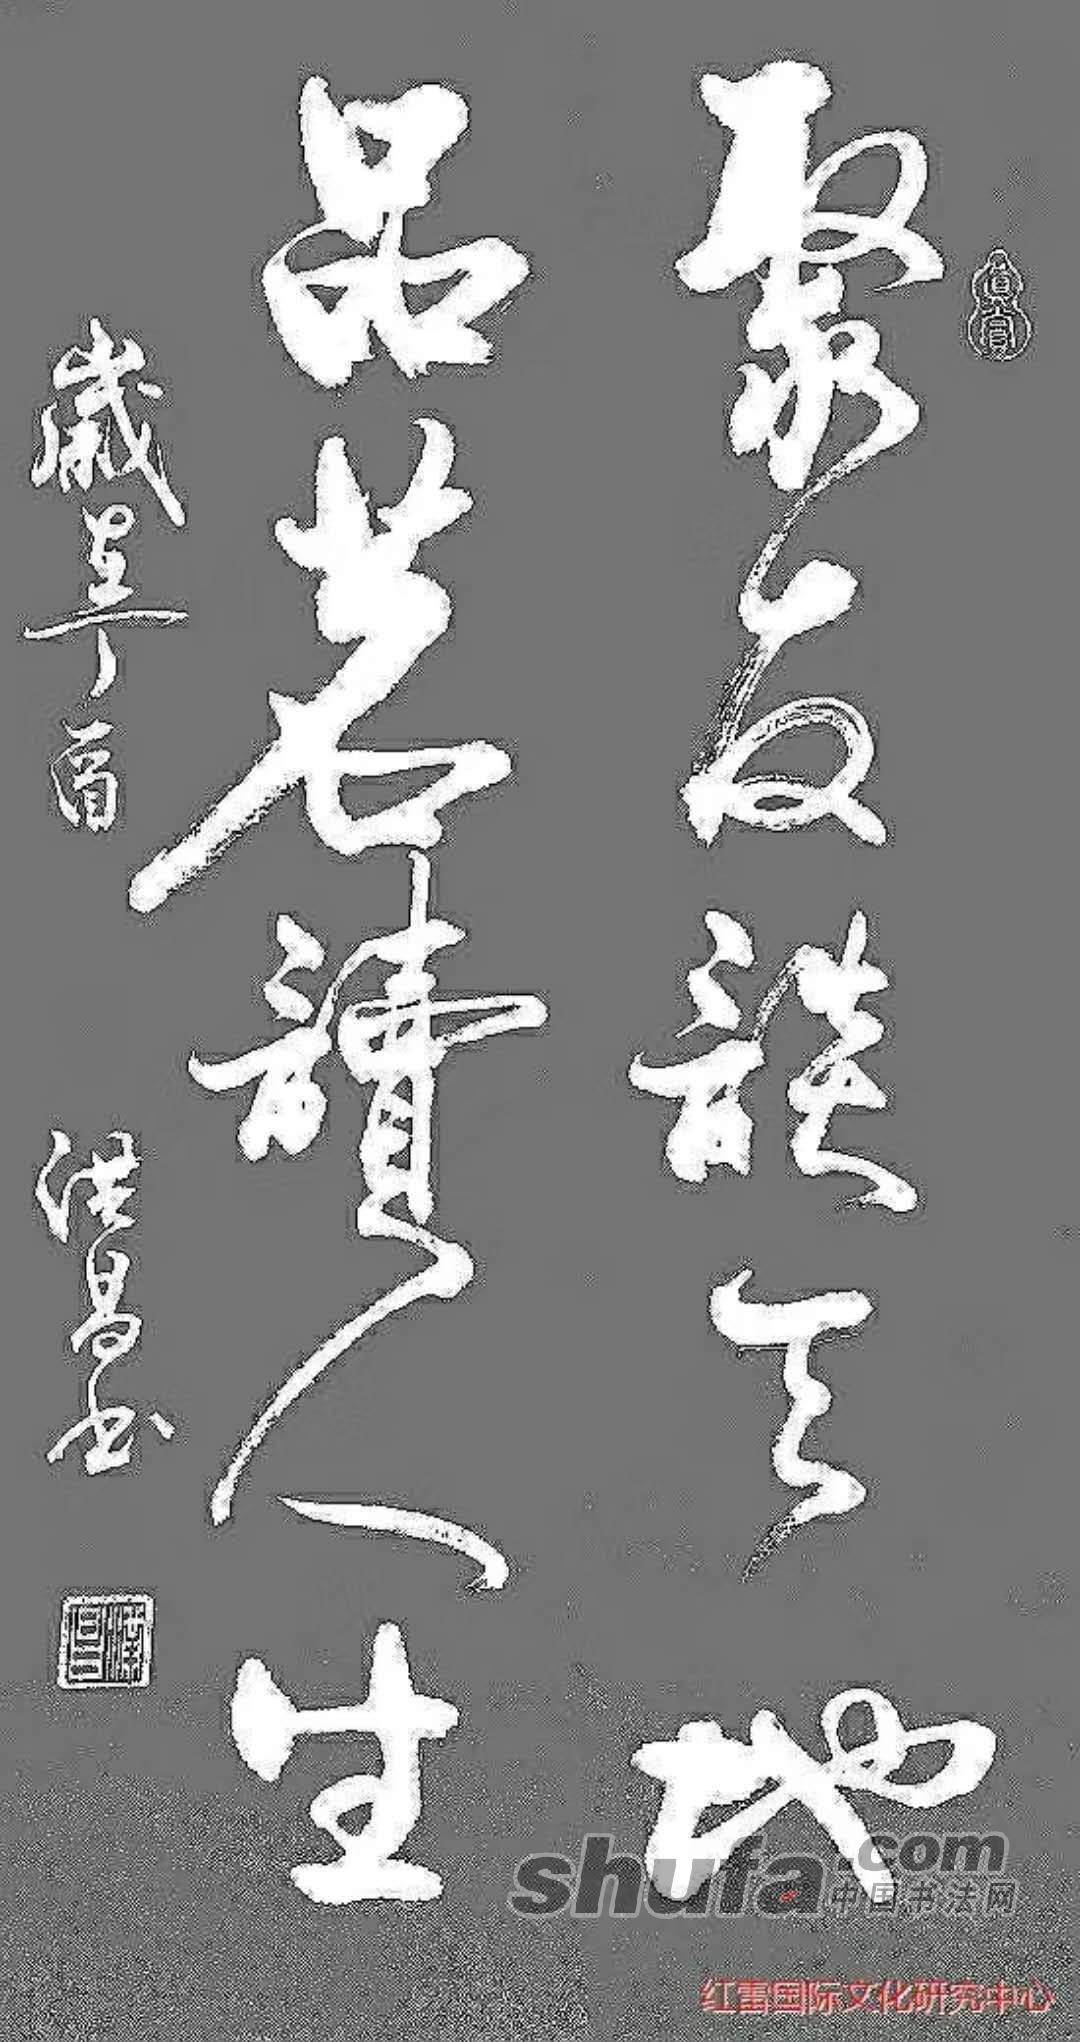 聚友談天地
品茗讀人生
歲星丁酉
洪昌書
shufa.com
中国书法网
红雷国际文化研究中心